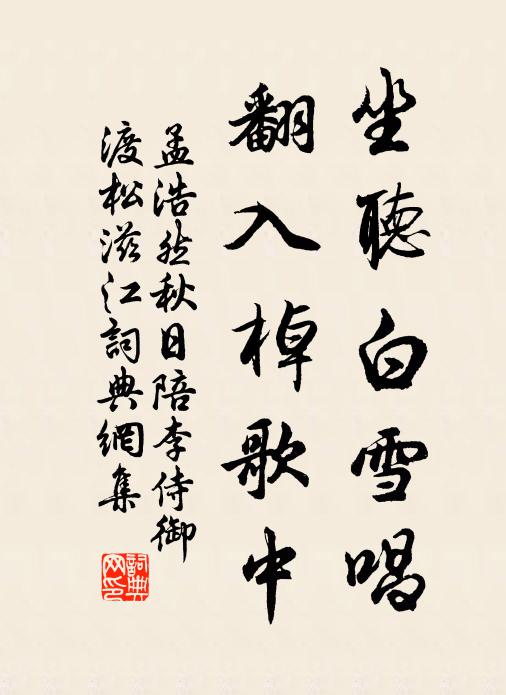 坐聽白雪唱
翻入棹歌中
孟浩然秋日陪李侍御
渡松滋江詞典網集
詞典
网印